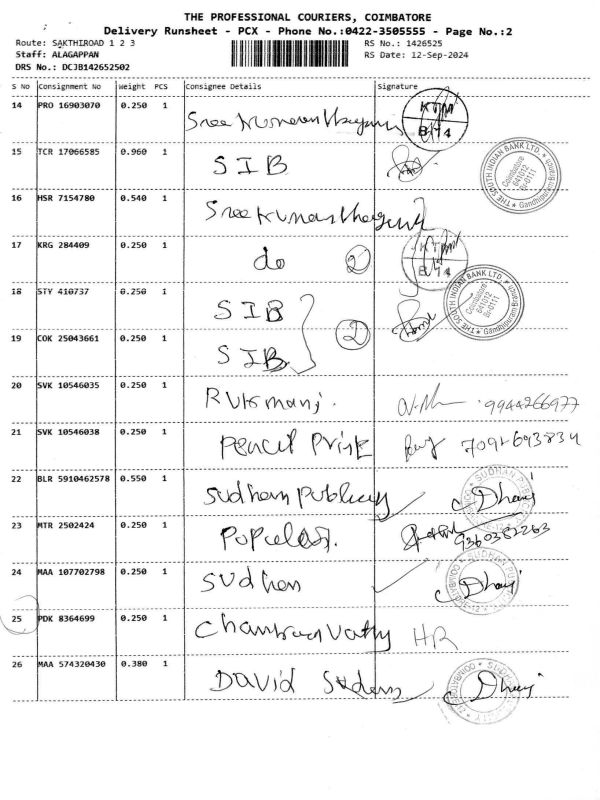 THE PROFESSIONAL COURIERS, COIMBATORE
Delivery Runsheet - PCX - Phone No.:0422-3505555 - Page No.:2
Route: SAKTHIROAD 1 2 3 RS No.: 1426525
Staff: ALAGAPPAN RS Date: 12-Sep-2024
DRS No.: DCJB142652502
S No Consignment No Weight PCS Consignee Details Signature
14 PRO 16903070 0.250 1 Sree KTM B 74
15 TCR 17066585 0.960 1 SIB THE SOUTH INDIAN BANK LTD. Coimbatore 641012 Br-0111 Gandhipuram Branch
16 HSR 7154780 0.540 1 Sree
17 KRG 284409 0.250 1 do 2 KTM B 74
18 STY 410737 0.250 1 SIB THE SOUTH INDIAN BANK LTD. Coimbatore 641012 Br-0111 Gandhipuram Branch
2
19 COK 25043661 0.250 1 SIB
20 SVK 10546035 0.250 1 9944266977
21 SVK 10546038 0.250 1 Pencil Print
22 BLR 5910462578 0.550 1 Sudhan Dhanj
23 MTR 2502424 0.250 1 9360382263
24 MAA 107702798 0.250 1 Sudhan Dhanj
25 PDK 8364699 0.250 1 HR
26 MAA 574320430 0.380 1 David Dhanj